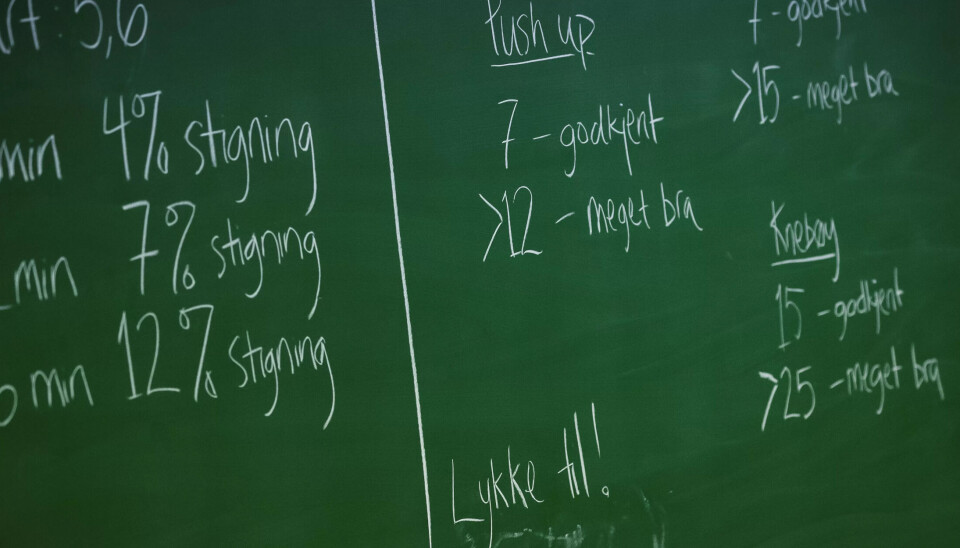 5,6
min 4% stigning
min 7% stigning
min 12% stigning
Push up
7 - godkjent
>12 - meget bra
Lykke til!
7 - godkjent
>15 - meget bra
Knebøy
15 - godkjent
>25 - meget bra